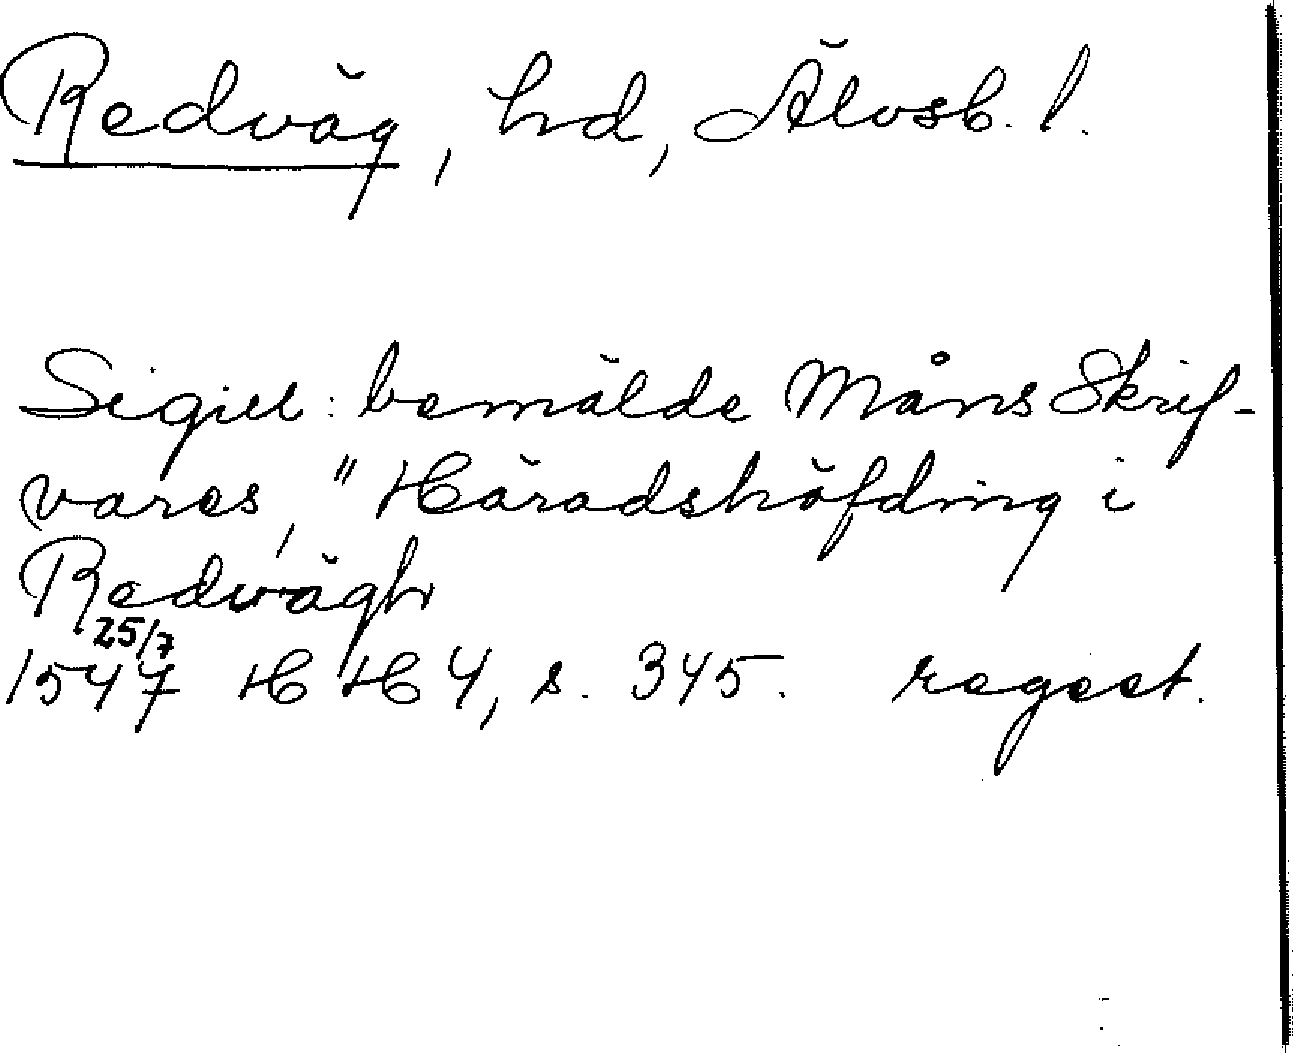 Redväg, hd, Älvsb. l.
Sigill: bemälde Måns Skrif-
vares, "Häradshöfding i
Redwägh
25/7
1547 HH 4, s. 345. regest.